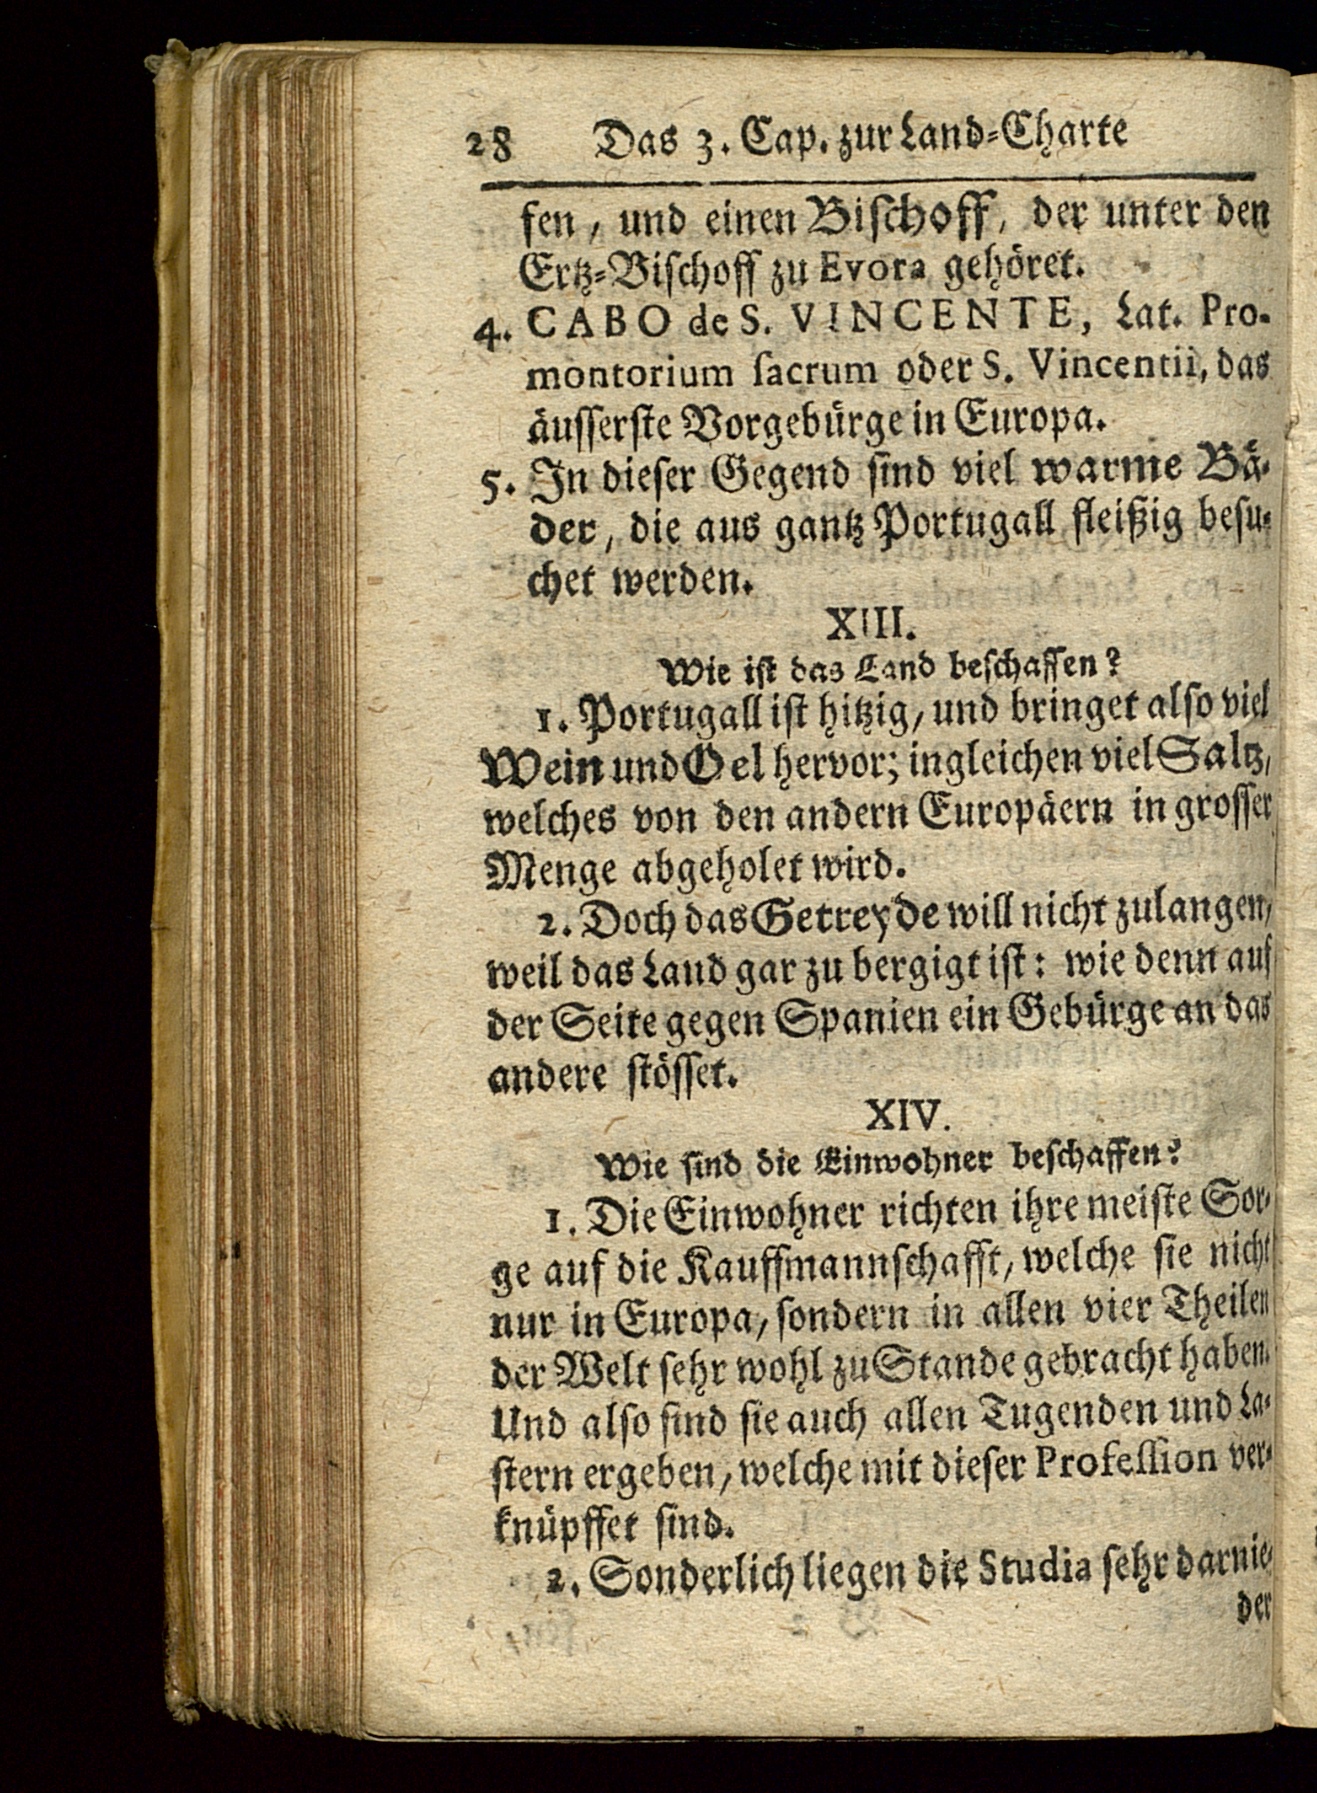 28 Das 3. Cap. zur Land-Charte
fen, und einen Biſchoff, der unter den
Ertz-Biſchoff zu Evora gehöret.
4. CABO de S. VINCENTE, Lat. Pro-
montorium ſacrum oder S. Vincentii, das
äuſſerſte Vorgebürge in Europa.
5. In dieſer Gegend ſind viel warme Bä-
der, die aus gantz Portugall fleißig beſu-
chet werden.
XIII.
Wie iſt das Land beſchaffen?
1. Portugall iſt hitzig, und bringet alſo viel
Wein und Oel hervor; ingleichen viel Saltz,
welches von den andern Europäern in groſſer
Menge abgeholet wird.
2. Doch das Getreyde will nicht zulangen,
weil das Land gar zu bergigt iſt: wie denn auf
der Seite gegen Spanien ein Gebürge an das
andere ſtöſſet.
XIV.
Wie ſind die Einwohner beſchaffen?
1. Die Einwohner richten ihre meiſte Sor-
ge auf die Kauffmannſchafft, welche ſie nicht
nur in Europa, ſondern in allen vier Theilen
der Welt ſehr wohl zu Stande gebracht haben.
Und alſo ſind ſie auch allen Tugenden und La-
ſtern ergeben, welche mit dieſer Profeſſion ver-
knüpffet ſind.
2. Sonderlich liegen die Studia ſehr darnie-
der